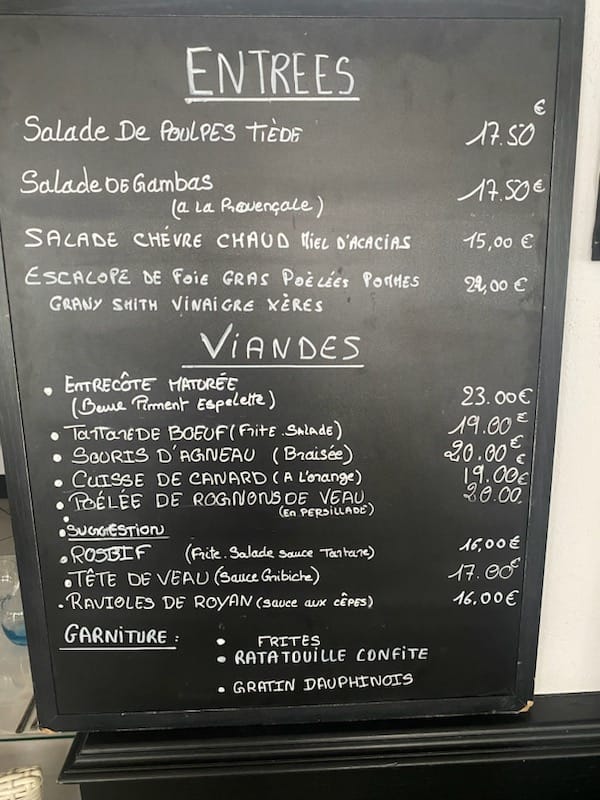 ENTREES
Salade De POULPES TIÈDE 17.50 €
Salade DE Gambas 17.50 €
(a La Provençale)
SALADE CHÉVRE CHAUD Miel D'ACACIAS 15,00 €
ESCALOPE DE FOIE GRAS POÈLÉES POMMES 22,00 €
GRANY SMITH VINAIGRE XÈRES
VIANDES
• ENTRECÔTE MATURÉE 23.00€
(Beurre Piment Espelette)
• TARTARE DE BOEUF (Frite. SALADE) 19.00 €
• SOURIS D'AGNEAU (Braisée) 20.00 €
• CUISSE DE CANARD (A L'orange) 19.00€
• POÊLÉE DE ROGNONS DE VEAU 20.00.
(En PERSILLADE)
• SUGGESTION
• ROSBIF (Frite. Salade sauce Tartare) 16,00 €
• TÊTE DE VEAU (Sauce Gribiche) 17.00€
• RAVIOLES DE ROYAN (sauce aux CÊPES) 16.00€
GARNITURE :
• FRITES
• RATATOUILLE CONFITE
• GRATIN DAUPHINOIS